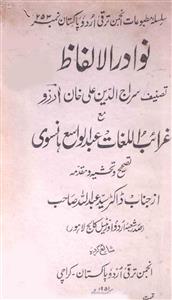 سلسلہ مطبوعات انجمن ترقی اُردو پاکستان نمبر ۲۵۳
نوادر الالفاظ
تصنیف سراج الدین علی خان آرزو
مع
غرائب اللغات عبدالواسع ہانسوی
بتصحیح و تحشیہ و مقدمہ
از جناب ڈاکٹر سید عبداللہ صاحب
(صدر شعبۂ اُردو اورینٹل کالج لاہور)
شائع کردہ
انجمن ترقی اُردو پاکستان - کراچی
۱۹۵۱ء
قیمت